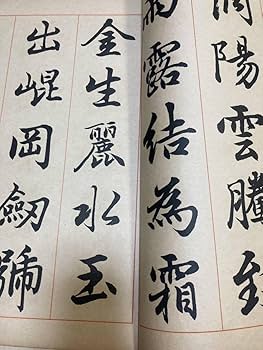 調陽雲騰致
雨露結為霜
金生麗水玉
出崐岡劔號